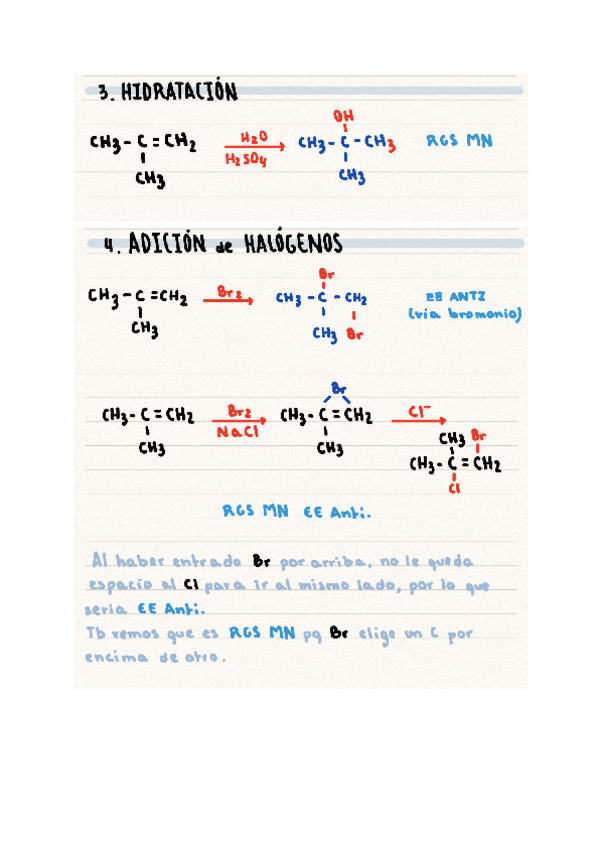 3. HIDRATACIÓN
OH
CH3 - C = CH2 H2O CH3 - C - CH3 RGS MN
H2SO4
CH3 CH3
4. ADICIÓN de HALÓGENOS
Br
CH3 - C = CH2 Br2 CH3 - C - CH2 EE ANTI
(via bromonio)
CH3 CH3 Br
Br
CH3 - C = CH2 Br2 CH3 - C = CH2 Cl-
NaCl
CH3 CH3 CH3 Br
CH3 - C = CH2
Cl
RGS MN EE Anti.
Al haber entrado Br por arriba, no le queda
espacio al Cl para ir al mismo lado, por lo que
seria EE Anti.
Tb vemos que es RGS MN pq Br elige un C por
encima de otro.